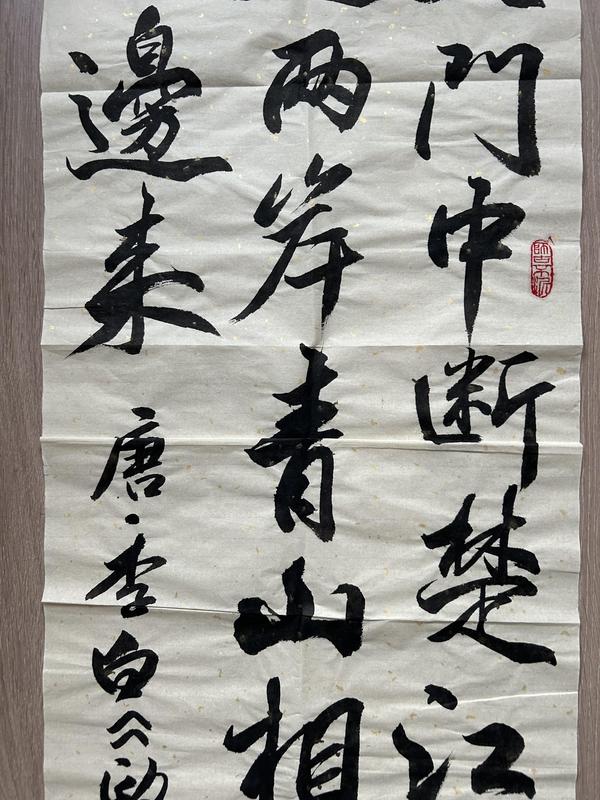 門中断楚江
两岸青山相
邊来
唐·李白